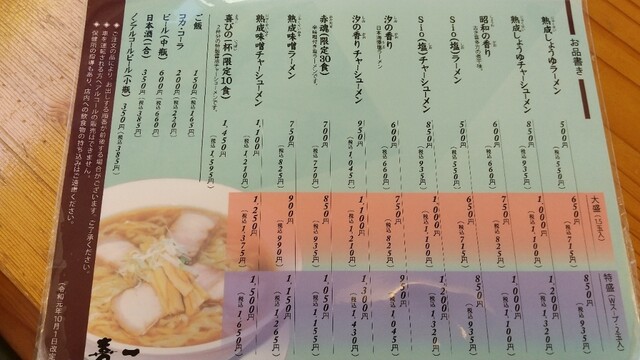 お品書き
大盛(1.5玉入)
特盛(Wスープ・2玉入)
熟成しょうゆラーメン 500円(税込550円) 650円(税込715円) 850円(税込935円)
熟成しょうゆチャーシューメン 850円(税込935円) 1,000円(税込1,100円) 1,200円(税込1,320円)
昭和の香り 600円(税込660円) 750円(税込825円) 1,000円(税込1,100円)
Sio(塩)ラーメン 500円(税込550円) 650円(税込715円) 850円(税込935円)
Sio(塩)チャーシューメン 850円(税込935円) 1,000円(税込1,100円) 1,200円(税込1,320円)
汐の香り 600円(税込660円) 750円(税込825円) 950円(税込1,045円)
汐の香りチャーシューメン 950円(税込1,045円) 1,100円(税込1,210円) 1,300円(税込1,430円)
赤魂(限定30食) 700円(税込770円) 850円(税込935円) 1,050円(税込1,155円)
熟成味噌ラーメン 750円(税込825円) 900円(税込990円) 1,150円(税込1,265円)
熟成味噌チャーシューメン 1,100円(税込1,210円) 1,250円(税込1,375円) 1,500円(税込1,650円)
喜びの一杯(限定10食) 1,450円(税込1,595円)
ご飯 150円(税込165円)
コカ・コーラ 200円(税込220円)
ビール(中瓶) 600円(税込660円)
日本酒(一合) 350円(税込385円)
ノンアルコールビール(小瓶) 350円(税込385円)
ご注文の品により、お出しする順番が前後する場合がございます。ご了承ください。
車を運転される方へアルコールの販売はできません。
保健所の指導もあり、店内への飲食物の持ち込みはご遠慮ください。
(令和元年10月1日改定)